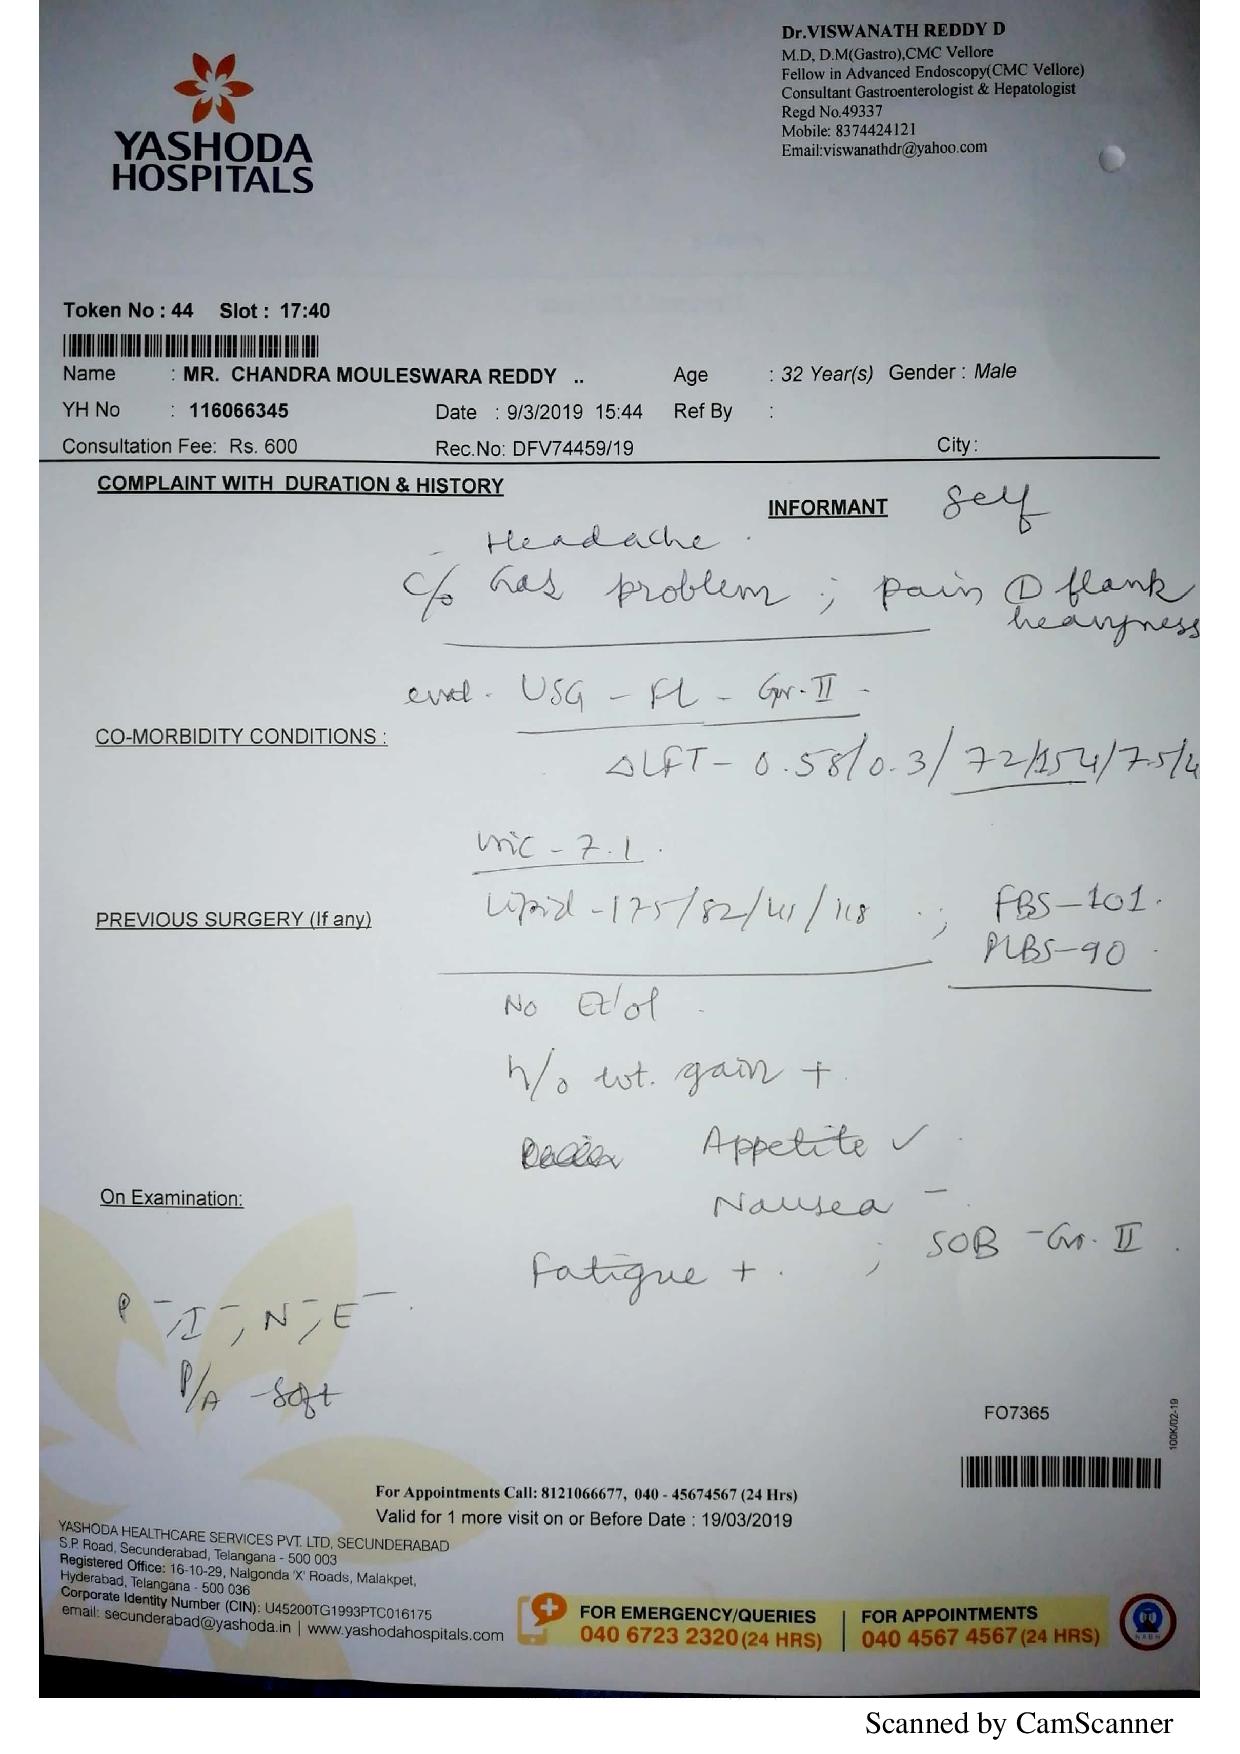 Dr.VISWANATH REDDY D
M.D, D.M(Gastro),CMC Vellore
Fellow in Advanced Endoscopy(CMC Vellore)
Consultant Gastroenterologist & Hepatologist
Regd No.49337
Mobile: 8374424121
Email:viswanathdr@yahoo.com
YASHODA
HOSPITALS
Token No : 44 Slot : 17:40
Name : MR. CHANDRA MOULESWARA REDDY .. Age : 32 Year(s) Gender : Male
YH No : 116066345 Date : 9/3/2019 15:44 Ref By :
Consultation Fee: Rs. 600 Rec.No: DFV74459/19 City :
COMPLAINT WITH DURATION & HISTORY
INFORMANT Self
- Headache .
c/o Gas problem ; pain flank
heavyness
eval. USG - FL - Gr. II -
CO-MORBIDITY CONDITIONS :
LFT - 0.58/0.3/72/154/7.5/4
uric - 7.1 .
PREVIOUS SURGERY (If any)
Lipid - 175/82/41/118 ; FBS-101.
PLBS-90 .
No Et/ol .
h/o wt. gain +.
Appetite ✓ .
Nausea -.
On Examination:
Fatigue + . ; SOB - Gr. II .
P -, I -, N -, E - .
P/A - Soft
FO7365
100K/02-19
For Appointments Call: 8121066677, 040 - 45674567 (24 Hrs)
Valid for 1 more visit on or Before Date : 19/03/2019
YASHODA HEALTHCARE SERVICES PVT. LTD, SECUNDERABAD
S.P. Road, Secunderabad, Telangana - 500 003
Registered Office: 16-10-29, Nalgonda 'X' Roads, Malakpet,
Hyderabad, Telangana - 500 036
Corporate Identity Number (CIN): U45200TG1993PTC016175
email: secunderabad@yashoda.in | www.yashodahospitals.com
FOR EMERGENCY/QUERIES
040 6723 2320 (24 HRS)
FOR APPOINTMENTS
040 4567 4567 (24 HRS)
NABH
Scanned by CamScanner